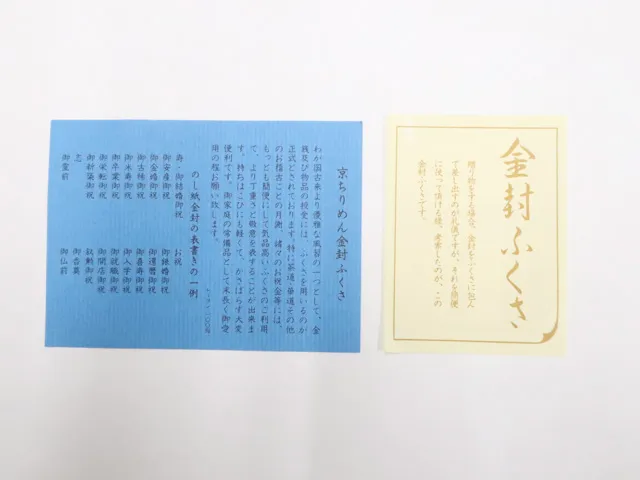 京ちりめん金封ふくさ
わが国古来より優雅な風習の一つとして、金
銭及び物品の授受には、ふくさを用いるのが
正式とされております。特に茶道、華道その他
のお稽古ごとの月謝、諸々のお祝金等には、
もっとも簡便にして気品高いふくさのご利用
で、より丁重さと敬意を表すことが出来ま
す。持ちはこびにも軽くて、かさばらず大変
便利です。御家庭の常備品として末長く御愛
用の程お願い致します。
のし紙金封の表書きの一例
寿・御結婚御祝
お祝
御安産御祝
御銀婚御祝
御金婚御祝
御還暦御祝
御古稀御祝
御喜寿御祝
御米寿御祝
御入学御祝
御卒業御祝
御就職御祝
御栄転御祝
御開店御祝
御新築御祝
叙勲御祝
志
御香奠
御霊前
御仏前
金封ふくさ
贈り物をする場合、金封をふくさに包ん
で差し出すのが礼儀ですが、それを簡便
に使って頂ける様、考案したのが、この
金封ふくさです。